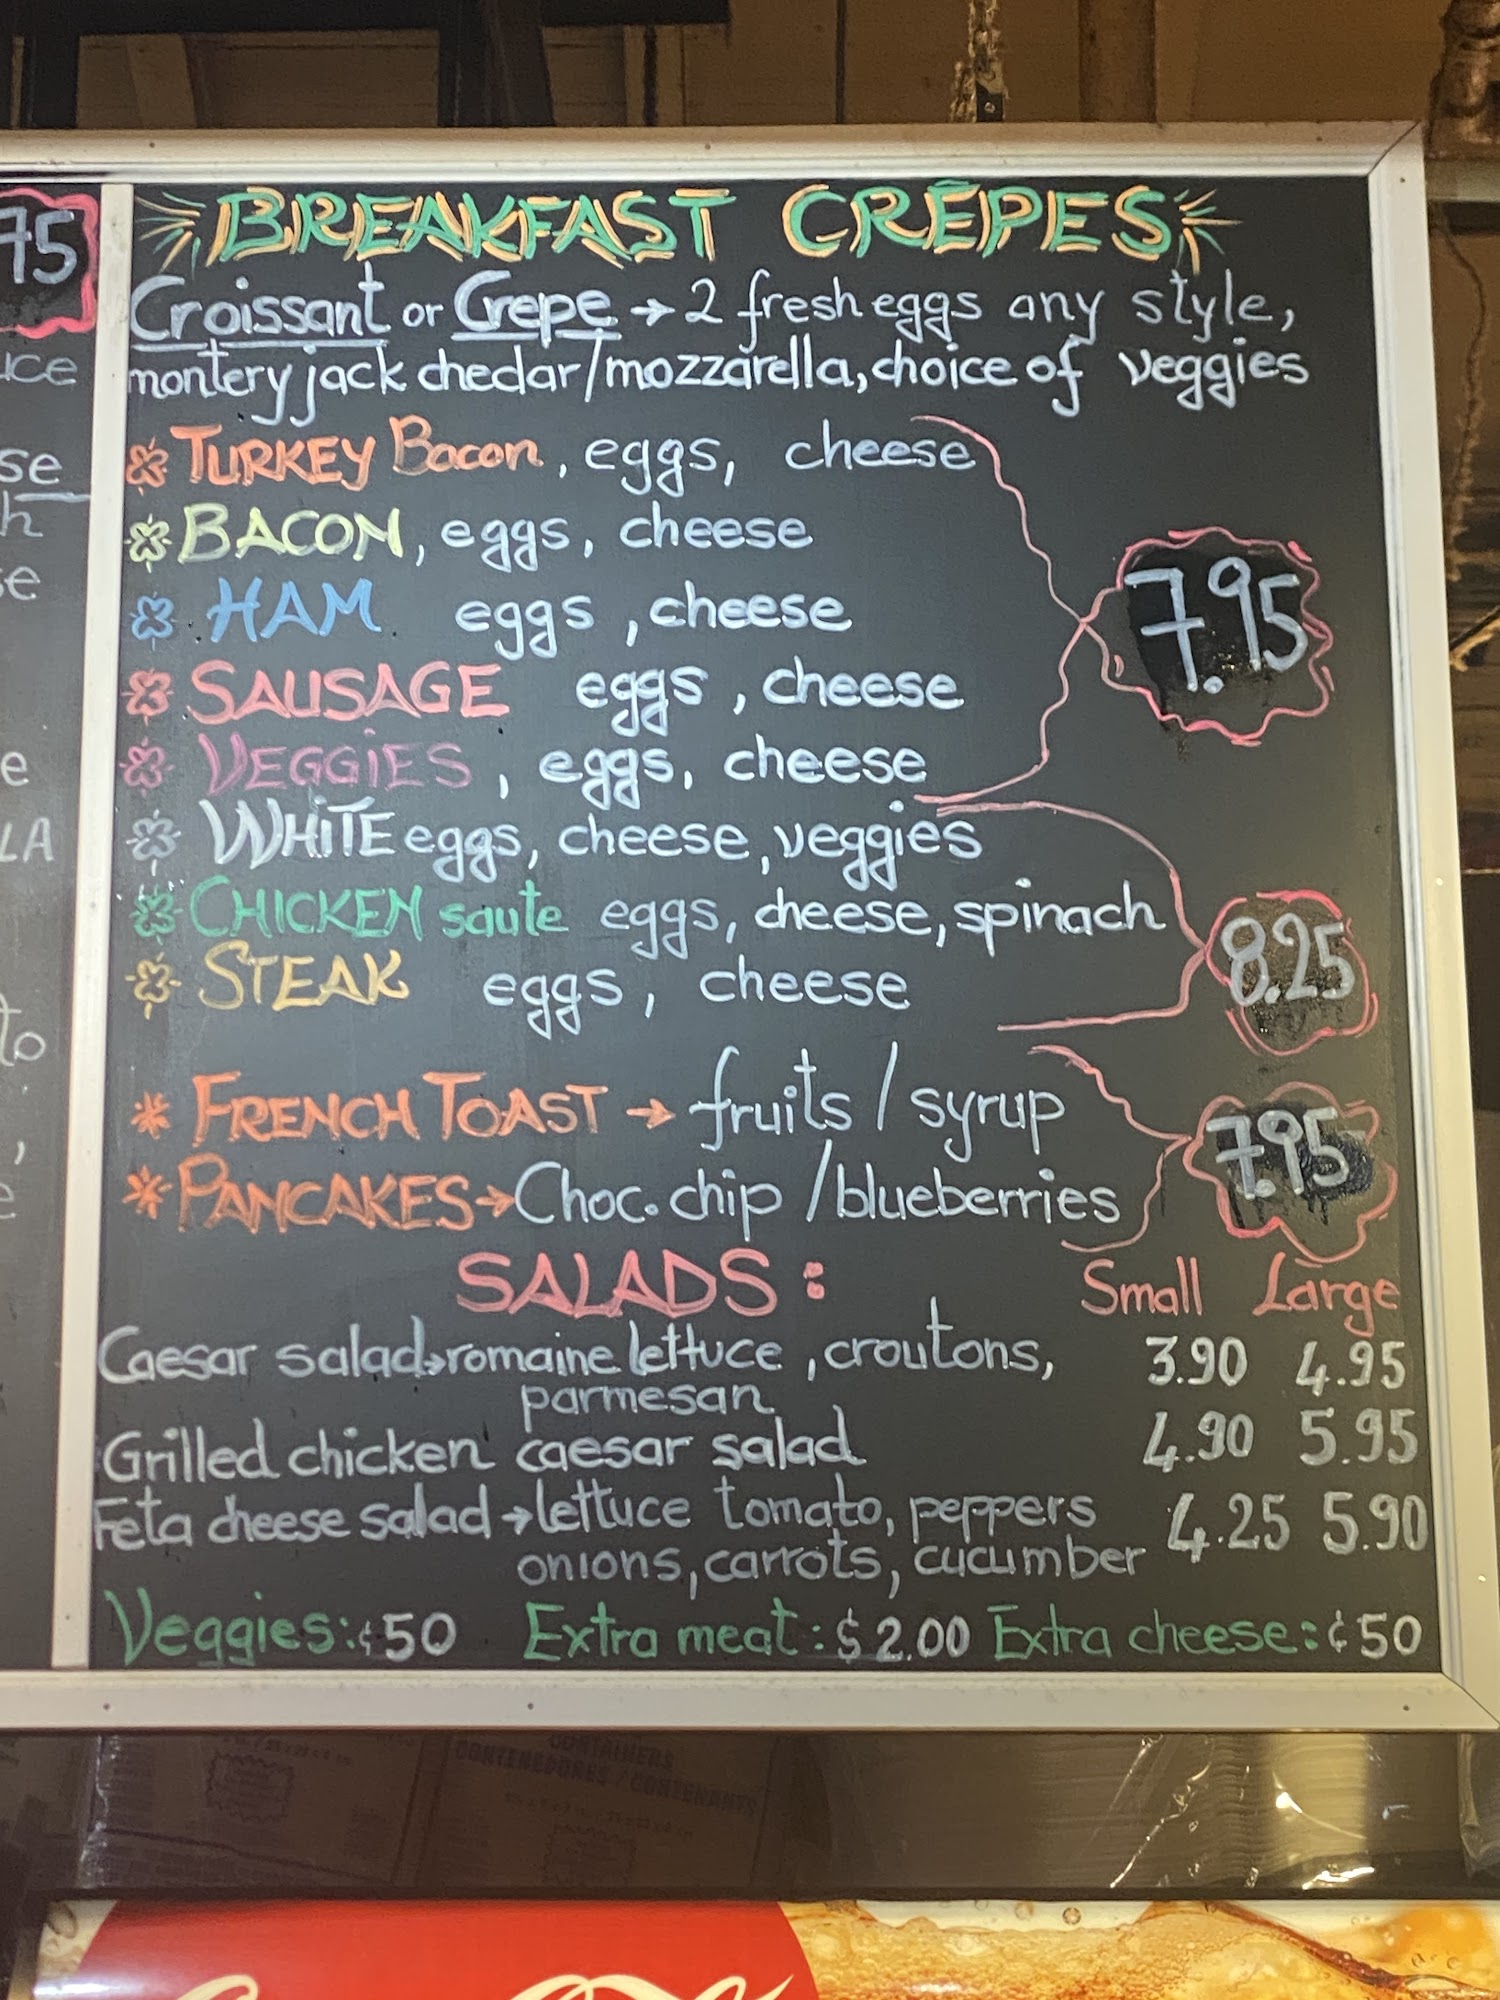 75
BREAKFAST CRÊPES
Croissant or Crepe → 2 fresh eggs any style,
montery jack chedar/mozzarella, choice of veggies
TURKEY Bacon, eggs, cheese
BACON, eggs, cheese
HAM eggs, cheese
7.95
SAUSAGE eggs, cheese
VEGGIES, eggs, cheese
WHITE eggs, cheese, veggies
CHICKEN saute eggs, cheese, spinach
8.25
STEAK eggs, cheese
FRENCH TOAST → fruits / syrup
7.95
PANCAKES → Choc. chip / blueberries
SALADS: Small Large
Caesar salad → romaine lettuce, croutons, 3.90 4.95
parmesan
Grilled chicken caesar salad 4.90 5.95
Feta cheese salad → lettuce tomato, peppers 4.25 5.90
onions, carrots, cucumber
Veggies: ¢50 Extra meat: $2.00 Extra cheese: ¢50
CONTAINERS
CONTENEDORES / CONTENANTS